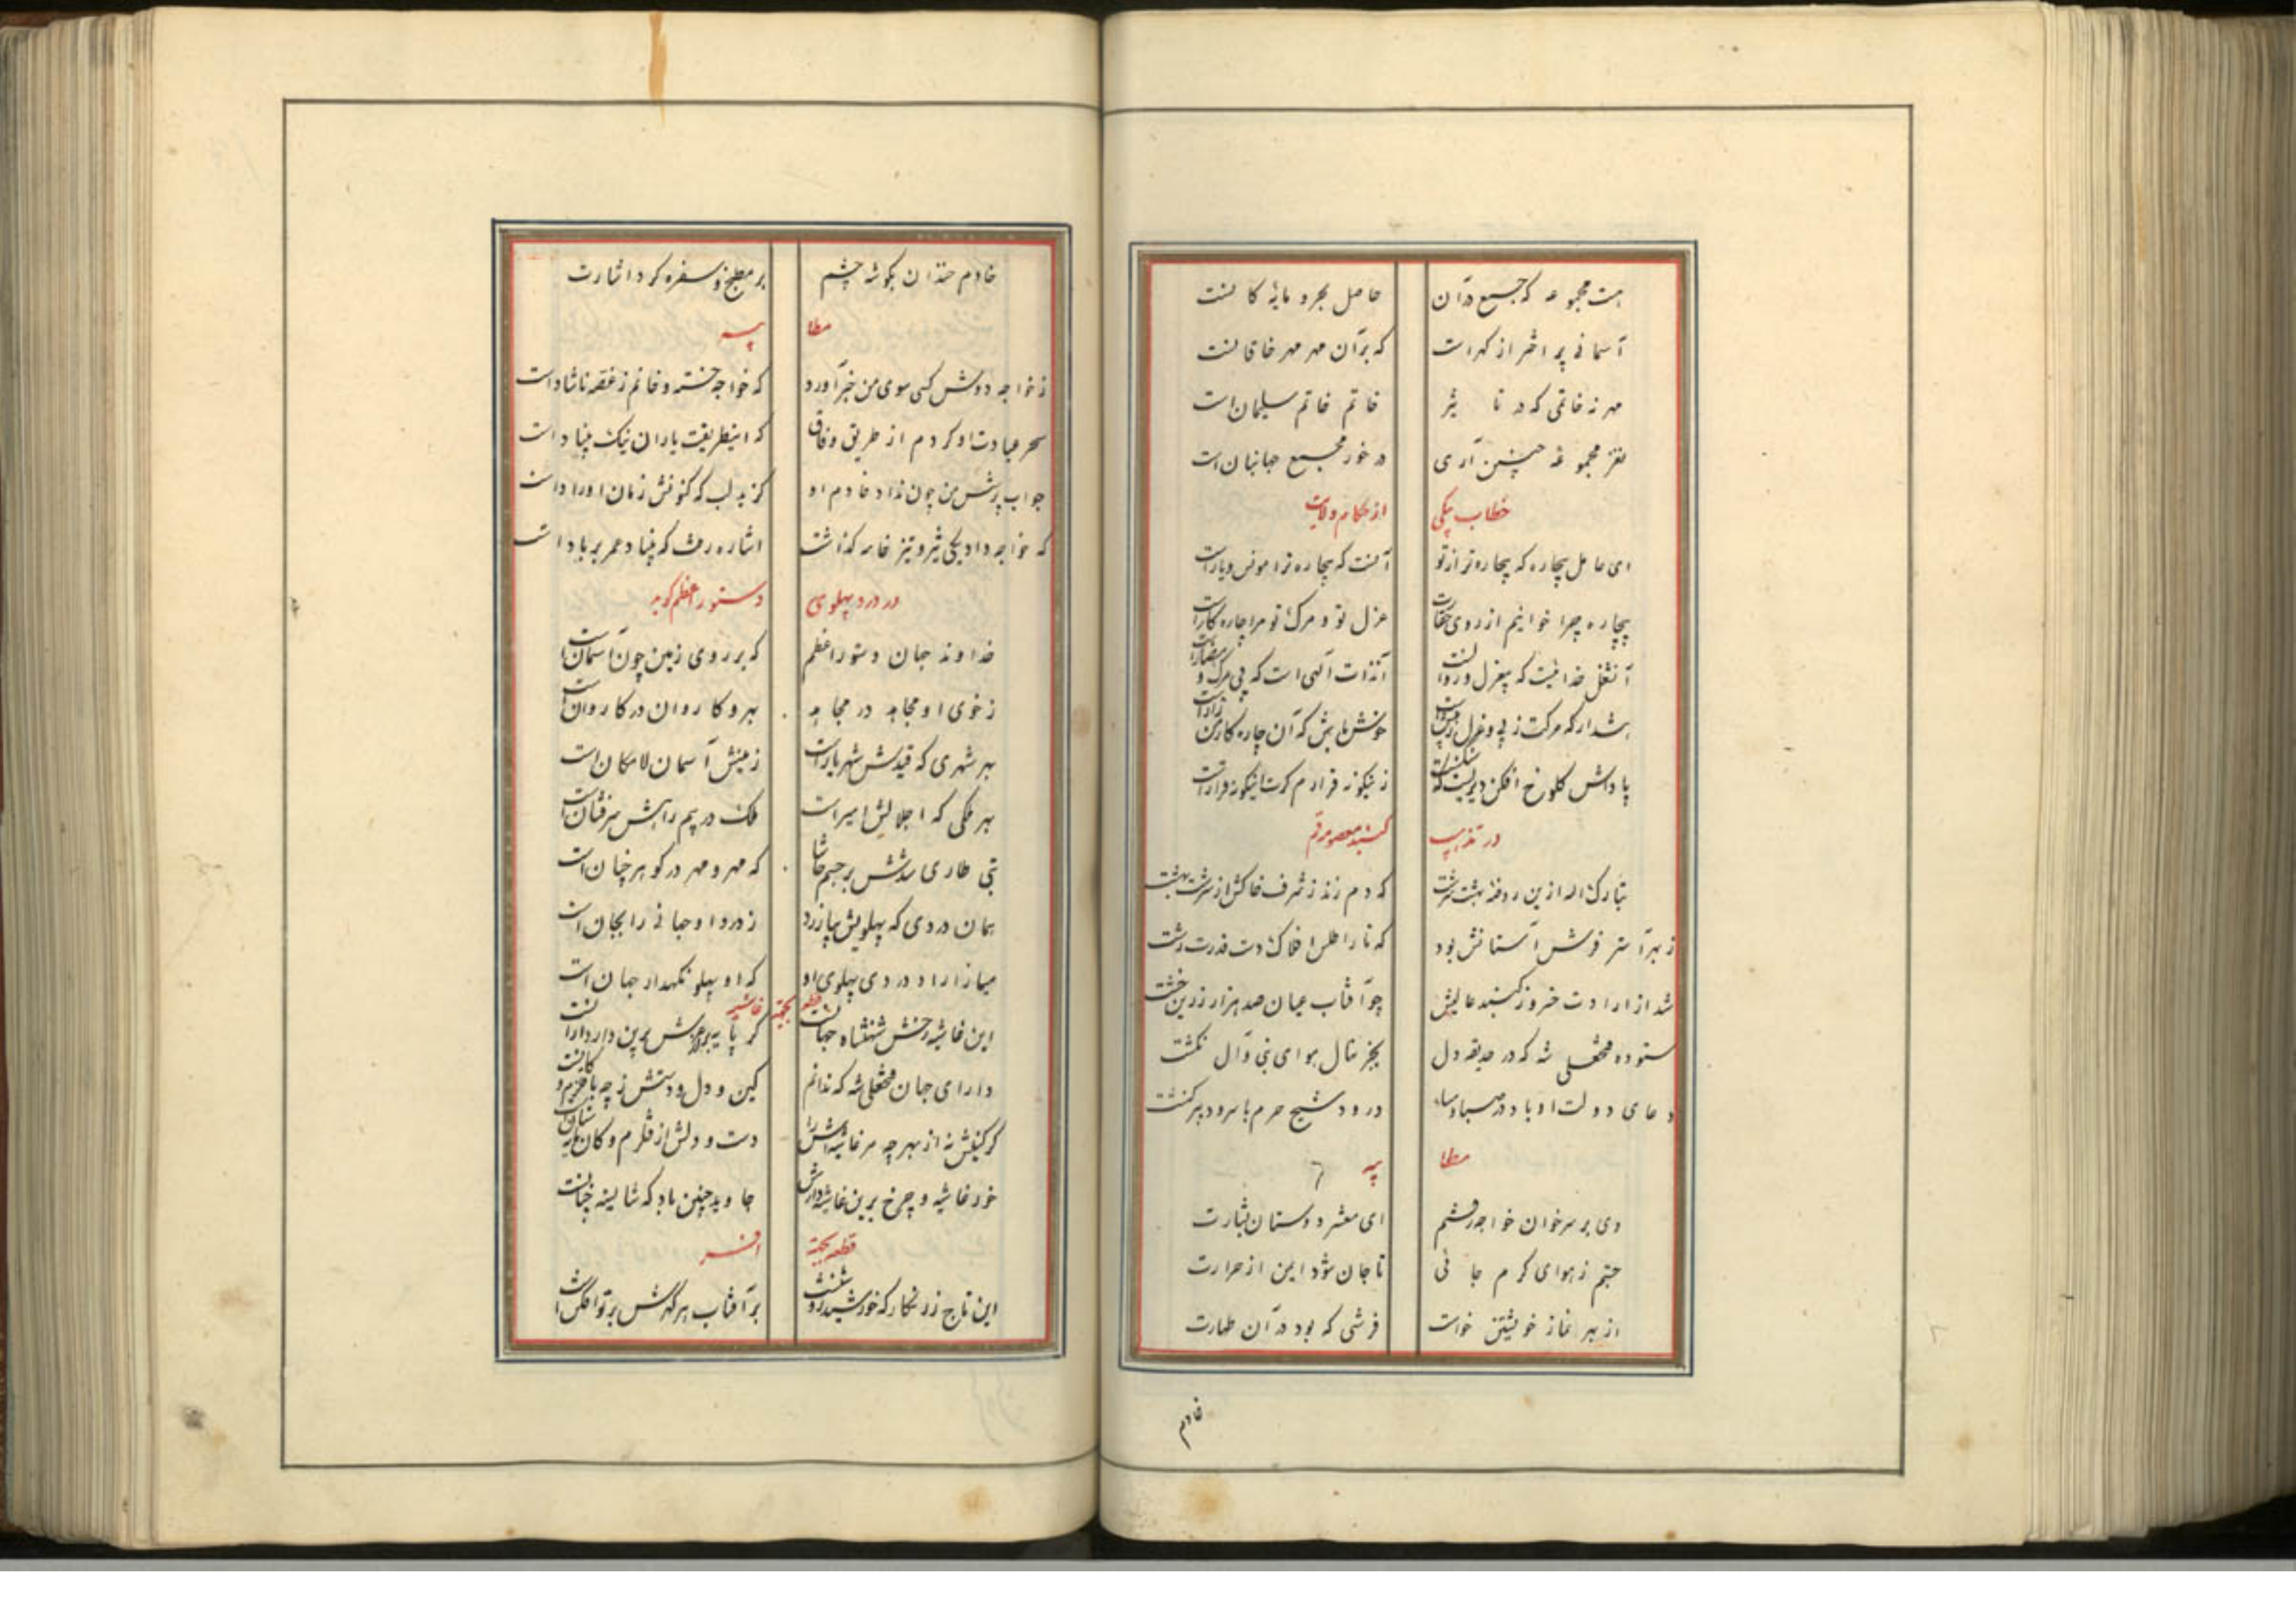 هست مجموعه که جمیع در آن حاصل بحر و مایه کانست
آسمانی پر اختر از گهرست که بر آن مهر مهر خاقانست
مهر نه خاتمی که در تاثیر خاتم خاتم سلیمان است
نغز مجموعه چنین آری در خور مجمع جهانبان است
خطاب بیکی از حکام ولایت
ای عامل بیچاره که بیچاره تر از تو آنست که بیچاره ترا مونس و یار است
بیچاره چرا خوانیم از روی حقارت عزل تو و مرگ تو مرا چاره کار است
آن شغل خدائیست که بی عزل و زوالست آن ذات آلهی است که بی مرگ و
هشدار که مرگت ز پی و عزل خوش باش که آن چاره
پاداش کلوخ افکن دیریست که زینگونه قرارم گرت اینگونه قرار است
در تذهیب گنبد معصومه قم
تبارک اله ازین روضه بهشت سرشت که دم زند ز شرف خاکش از سرشت بهشت
ز بهر آستر فرش آستانش بود که تار اطلس افلاک دست قدرت رشت
شد از ارادت خسرو ز گنبد عالیش چو آفتاب عیان صد هزار زرین خشت
ستوده فتحعلی شه که در حدیقه دل بجز نهال هوای نبی و آل نکشت
دعای دولت او باد در صباح و مسا درود شیخ حرم با سرود پیر کنشت
مطایبه
دی بر سر خوان خواجه رفتم ای معشر دوستان بشارت
جستم ز هوای گرم جائی تا جان شود ایمن از حرارت
از بهر نماز خویشتن خواست فرشی که بود در آن طهارت
خادم
خادم خندان بگوشه چشم بر مطبخ و سفره کرد اشارت
مطایبه
ز خواجه دوش کسی سوی من خبر آورد که خواجه خسته و خانم ز غصه ناشاد است
سحر عیادت او کردم از طریق وفاق که این طریقت یاران نیک بنیاد است
جواب پرسش من چون نداد خادم او گزید لب که کنونش زمان اوراد است
که خواجه داد یکی شیر و نیز خامه گذاشت اشاره رفت که بنیاد عمر بر باد است
در درد پهلوی دستور اعظم گوید
خداوند جان دستور اعظم که بر روی زمین چون آسمان است
ز خوی او مجاهد در مجاهد بهر و کاروان در کاروان است
بهر شهری که قیدش شهریار است زمینش آسمان لامکان است
بهر ملکی که اجلالش امیر است فلک در پیم راهش سرفشان است
تبی طاری شدش بر جسم حاشا که مهر و مهر در گوهر چنان است
همان دردی که پهلویش بیازرد ز درد او جهانی را بجان است
میازار ا و در دی پهلوی او که او پهلو نگهدار جهان است
قطعه بجهة غاشیه
این غاشیه رخش شهنشاه جهانست کز پایه بر عرش برین
دارای جهان فتحعلی شه که ندانم کین و دل و دستش ز چه با قلزم و کانست
گر کینش نه از بهر چه مر غاشیه اش را دست و دلش از قلزم و کان
خور غاشیه و چرخ برین غاشیه دارش جاوید چنین باد که شایسته چنانست
قطعه بجهة افسر
این تاج زرنگار که خورشید بر آفتاب هر گهرش پرتو افکن است